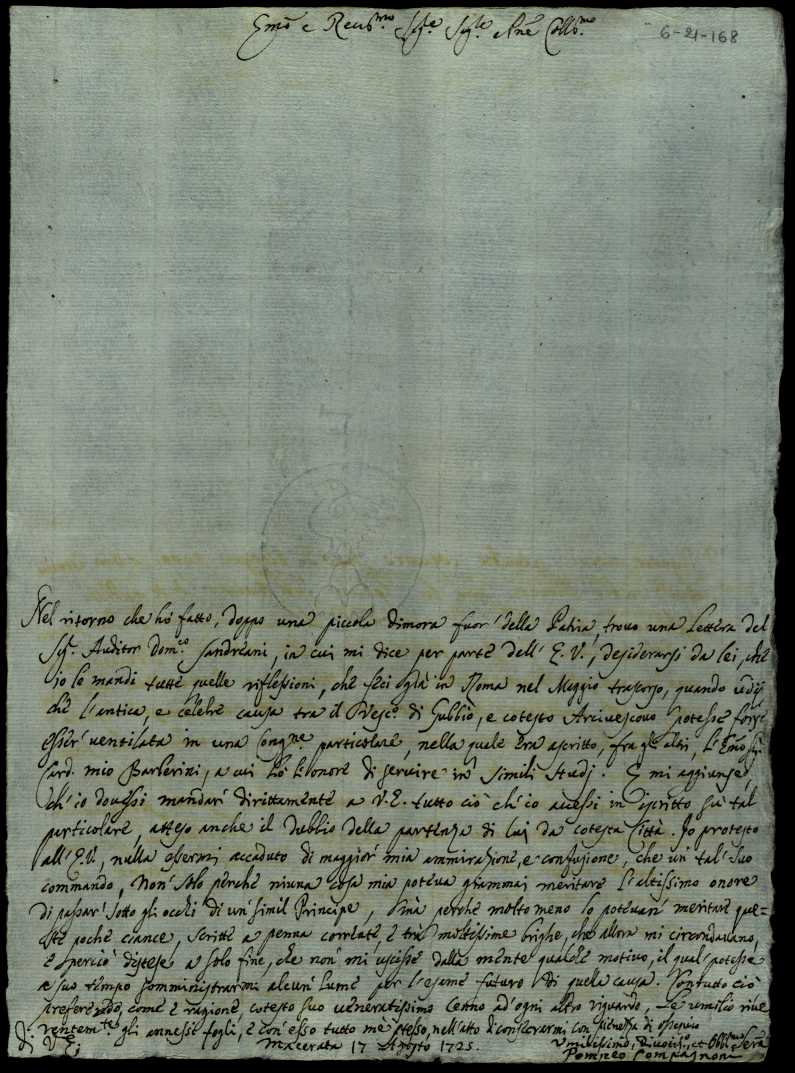 Emo e Reuo.mo Sig.re Sig.re Pne Collo.mo
6-21-168
Nel ritorno che hò fatto, doppo una piccola dimora fuor' della Patria, trovo una Lettera del
Sig.r Auditor Dom.co Sandreani, in cui mi dice per parte dell' E.V., desiderarsi da Lei, che
io le mandi tutte quelle riflessioni, che feci già in Roma nel Maggio trascorso, quando
che l'antica, e celebre causa tra il Vesc.o di Gubbio, e cotesto Arcivescovo potesse forse
esser' ventilata in una Cong.ne particolare, nella quale era ascritto, frà gl' altri, l'Emo Sig.r
Card. mio Barberini, a cui hò l'onore di servire in simili studj. E mi aggiunse,
ch' io dovessi mandar' dirittamente a V.E. tutto ciò ch' io avessi in iscritto sù tal
particolare, atteso anche il dubbio della partenza di Lui da cotesta Città. Io protesto
all' E.V., nulla essermi accaduto di maggior' mia ammirazione, e confusione, che un tal' suo
commando, non' solo perche niuna cosa mia poteva giammai meritare l'altissimo onore
di passar' sotto gli occhi di un' simil Principe, mà perche molto meno lo potevan' meritare que=
ste poche ciance, scritte a penna corrente, e trà moltissime brighe, che allora mi circondavano,
e perciò distese a solo fine, che non' mi uscisse dalla mente qualche motivo, il qual' potesse
a suo tempo somministrarmi alcun' lume per l'esame futuro di quella causa. Contuttociò
preferendo, come è ragione, cotesto suo veneratissimo cenno ad' ogni altro riguardo, Le umilio rive
rentem.te gli annessi fogli, e con' esso tutto me stesso, nell' atto di consecrarmi con pienezza di ossequio
di V.E;
Macerata 17 Agosto 1725.
Umilissimo, Divotis.o, et Obbl.mo Serv
Pompeo Compagnoni